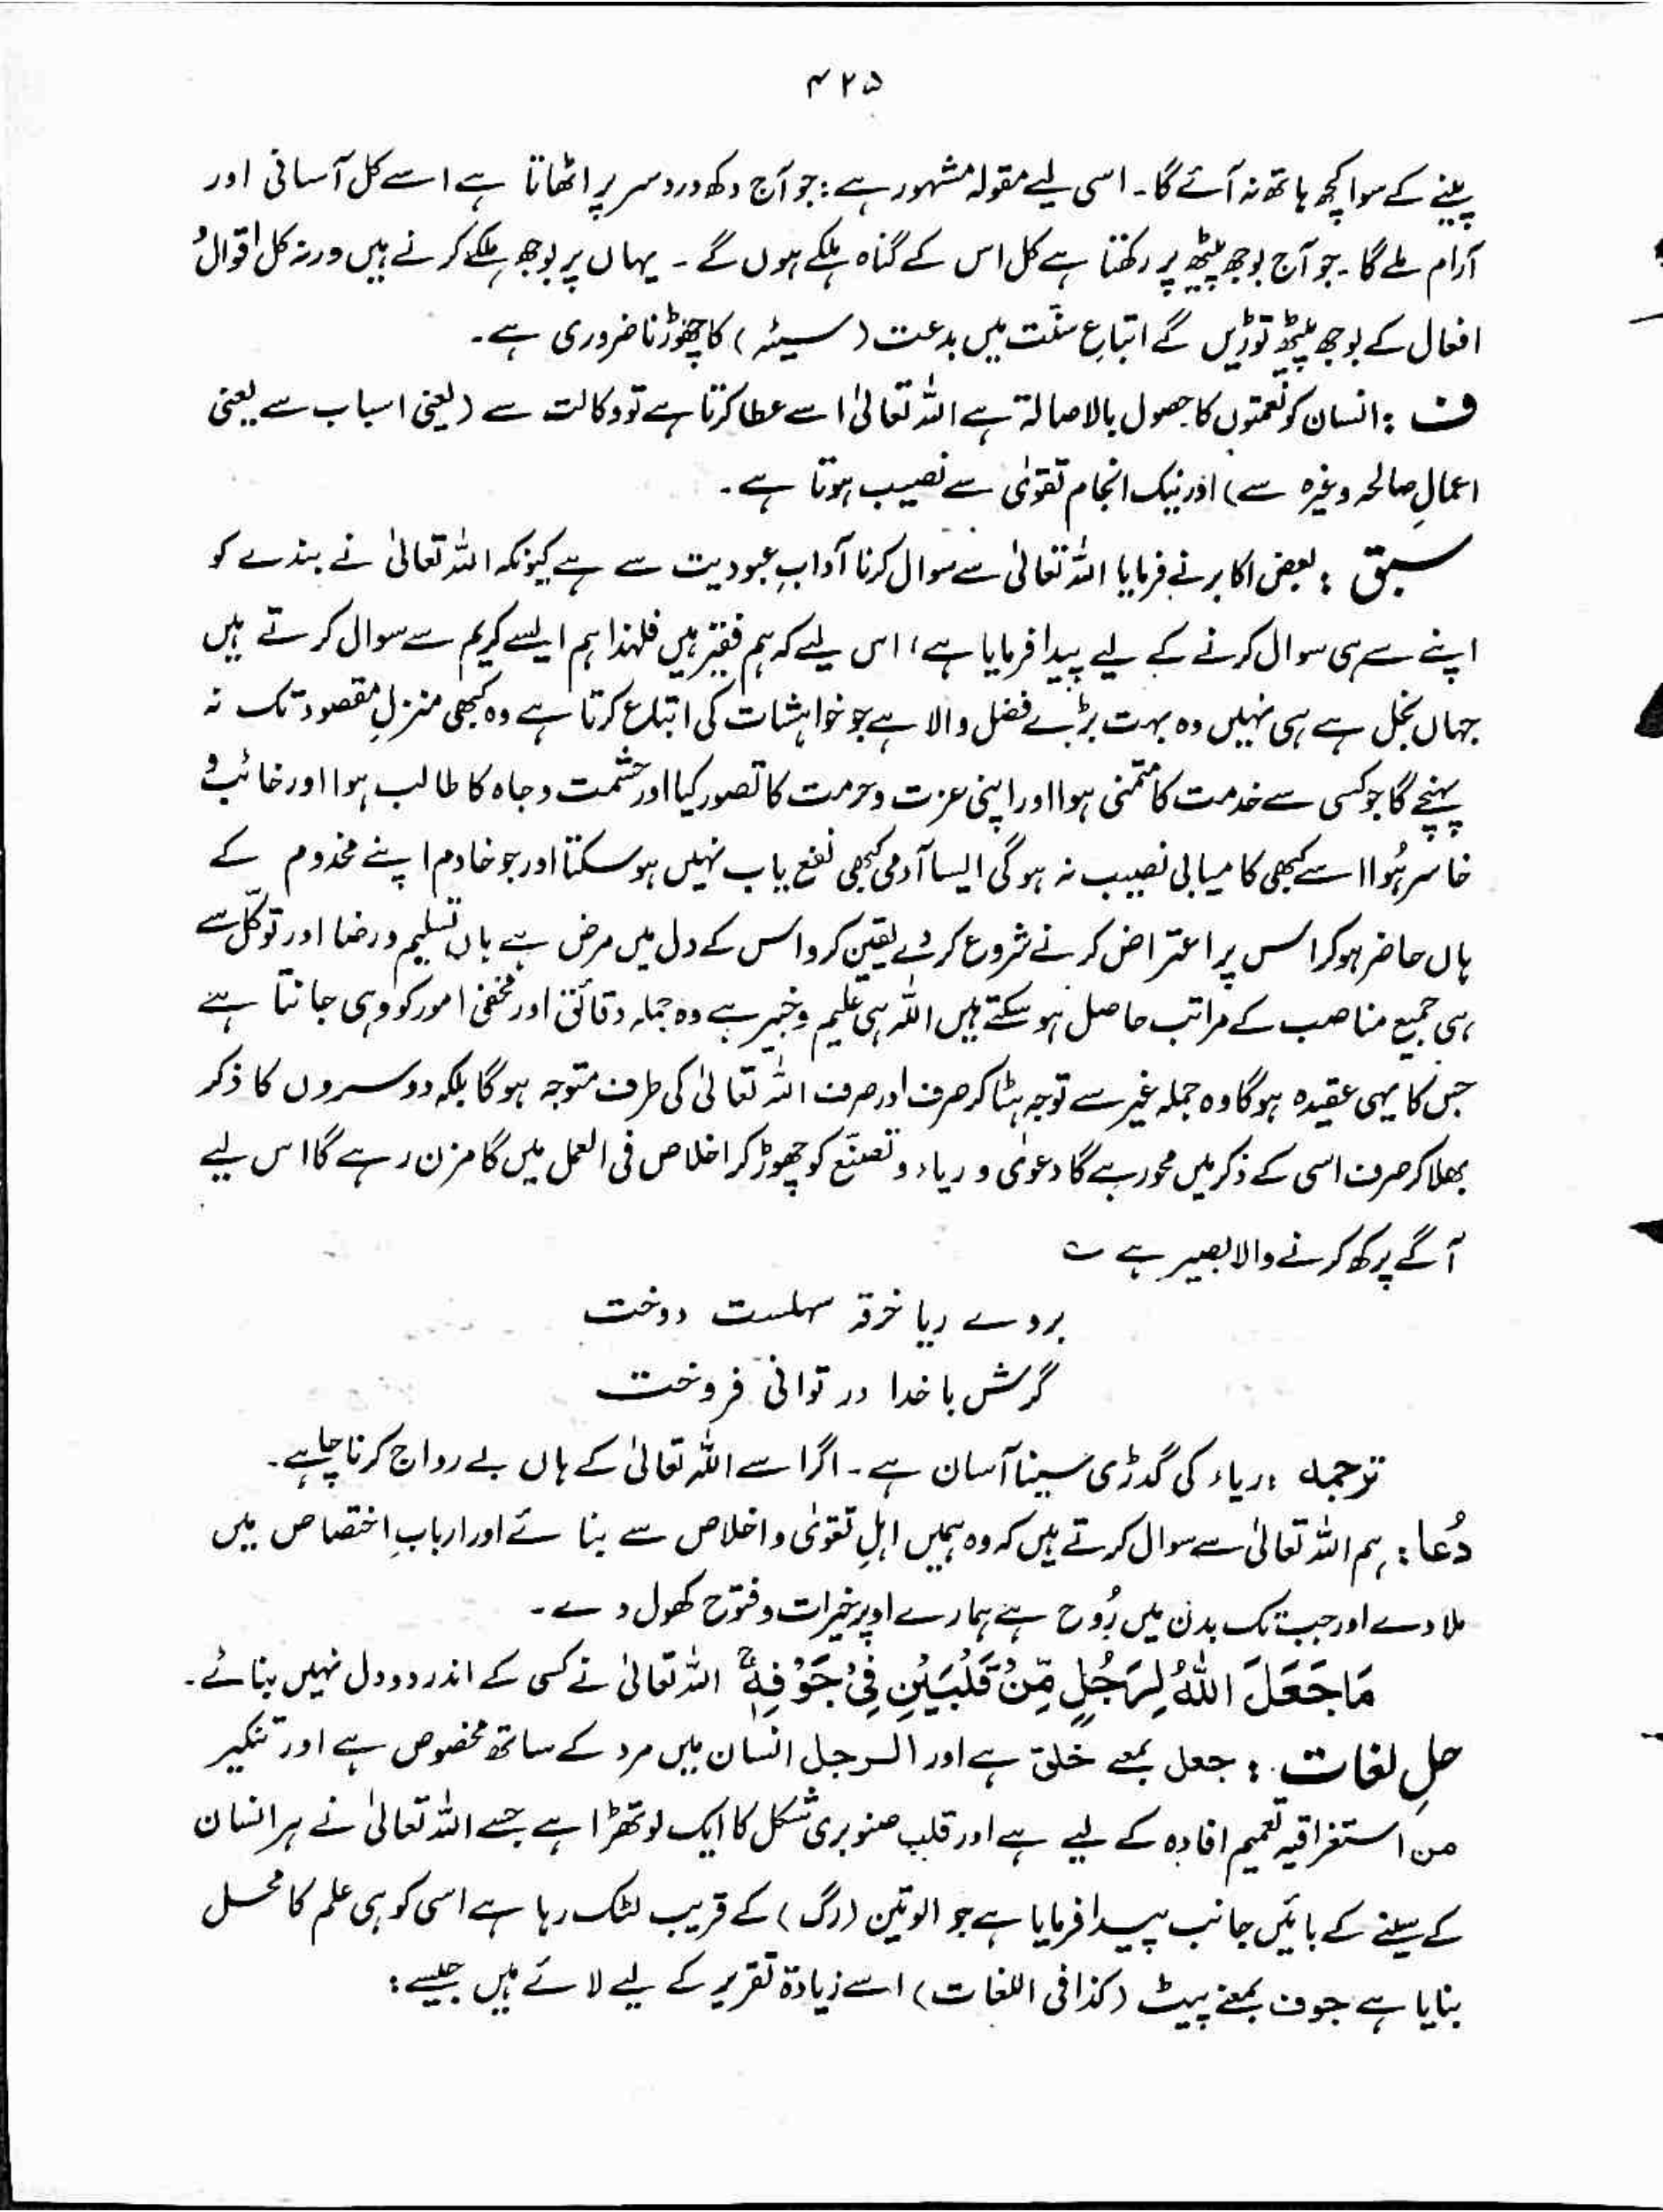 ۴۲۵
پلنے کے سوا کچھ ہاتھ نہ آئے گا۔ اسی لیے مقولہ مشہور ہے: جو آج دکھ درد سر پر اٹھاتا ہے اسے کل آسانی اور
آرام ملے گا۔ جو آج بوجھ پیٹھ پر رکھتا ہے کل اس کے گناہ ہلکے ہوں گے۔ یہاں پر بوجھ ہلکے کرنے ہیں ورنہ کل اقوال و
افعال کے بوجھ پیٹھ توڑیں گے اتباعِ سنّت میں بدعت (سیئہ) کا چھوڑنا ضروری ہے۔
ف : انسان کو نعمتوں کا حصول بالاصالۃ ہے اللہ تعالیٰ اسے عطا کرتا ہے تو وکالت سے (یعنی اسباب سے یعنی
اعمالِ صالحہ وغیرہ سے) اور نیک انجام تقویٰ سے نصیب ہوتا ہے۔
سبق : بعض اکابر نے فرمایا اللہ تعالیٰ سے سوال کرنا آدابِ عبودیت سے ہے کیونکہ اللہ تعالیٰ نے بندے کو
اپنے سے ہی سوال کرنے کے لیے پیدا فرمایا ہے، اس لیے کہ ہم فقیر ہیں فلہٰذا ہم ایسے کریم سے سوال کرتے ہیں
جہاں بخل ہے ہی نہیں وہ بہت بڑے فضل والا ہے جو خواہشات کی اتباع کرتا ہے وہ کبھی منزلِ مقصود تک نہ
پہنچے گا جو کسی سے خدمت کا متمنی ہوا اور اپنی عزت و حرمت کا تصور کیا اور حشمت و جاہ کا طالب ہوا اور خائب و
خاسر ہُوا اسے کبھی کامیابی نصیب نہ ہوگی ایسا آدمی کبھی نفع یاب نہیں ہو سکتا اور جو خادم اپنے مخدوم کے
ہاں حاضر ہو کر اس پر اعتراض کرنے شروع کر دے یقین کرو اس کے دل میں مرض ہے ہاں تسلیم و رضا اور توکّل سے
ہی جمیع مناصب کے مراتب حاصل ہو سکتے ہیں اللہ ہی علیم و خبیر ہے وہ جملہ دقائق اور مخفی امور کو وہی جانتا ہے
جس کا یہی عقیدہ ہوگا وہ جملہ غیر سے توجہ ہٹا کر صرف اور صرف اللہ تعالیٰ کی طرف متوجہ ہوگا بلکہ دوسروں کا ذکر
بھلا کر صرف اسی کے ذکر میں محو رہے گا دعویٰ و ریاء و تصنّع کو چھوڑ کر اخلاص فی العمل میں گامزن رہے گا اس لیے
آگے پرکھ کرنے والا بصیر ہے ؎
بروے ریا خرقہ سہلست دوخت
گرش با خدا در توانی فروخت
ترجمہ : ریاء کی گدڑی سینا آسان ہے۔ اگر اسے اللہ تعالیٰ کے ہاں بے رواج کرنا چاہے۔
دُعا : ہم اللہ تعالیٰ سے سوال کرتے ہیں کہ وہ ہمیں اہلِ تقویٰ و اخلاص سے بنائے اور اربابِ اختصاص میں
ملا دے اور جب تک بدن میں رُوح ہے ہمارے اوپر خیرات و فتوح کھول دے۔
مَا جَعَلَ اللّٰہُ لِرَجُلٍ مِّنْ قَلْبَیْنِ فِیْ جَوْفِہٖ ۚ اللہ تعالیٰ نے کسی کے اندر دو دل نہیں بنائے۔
حلِ لغات : جعل بمعنے خلق ہے اور الرجل انسان میں مرد کے ساتھ مخصوص ہے اور تنکیر
من استغراقیہ تعمیم افادہ کے لیے ہے اور قلب صنوبری شکل کا ایک لوتھڑا ہے جسے اللہ تعالیٰ نے ہر انسان
کے سینے کے بائیں جانب پیدا فرمایا ہے جو الوتین (رگ) کے قریب لٹک رہا ہے اسی کو ہی علم کا محل
بنایا ہے جوف بمعنے پیٹ (کذا فی اللغات) اسے زیادۃ تقریر کے لیے لائے ہیں جیسے :